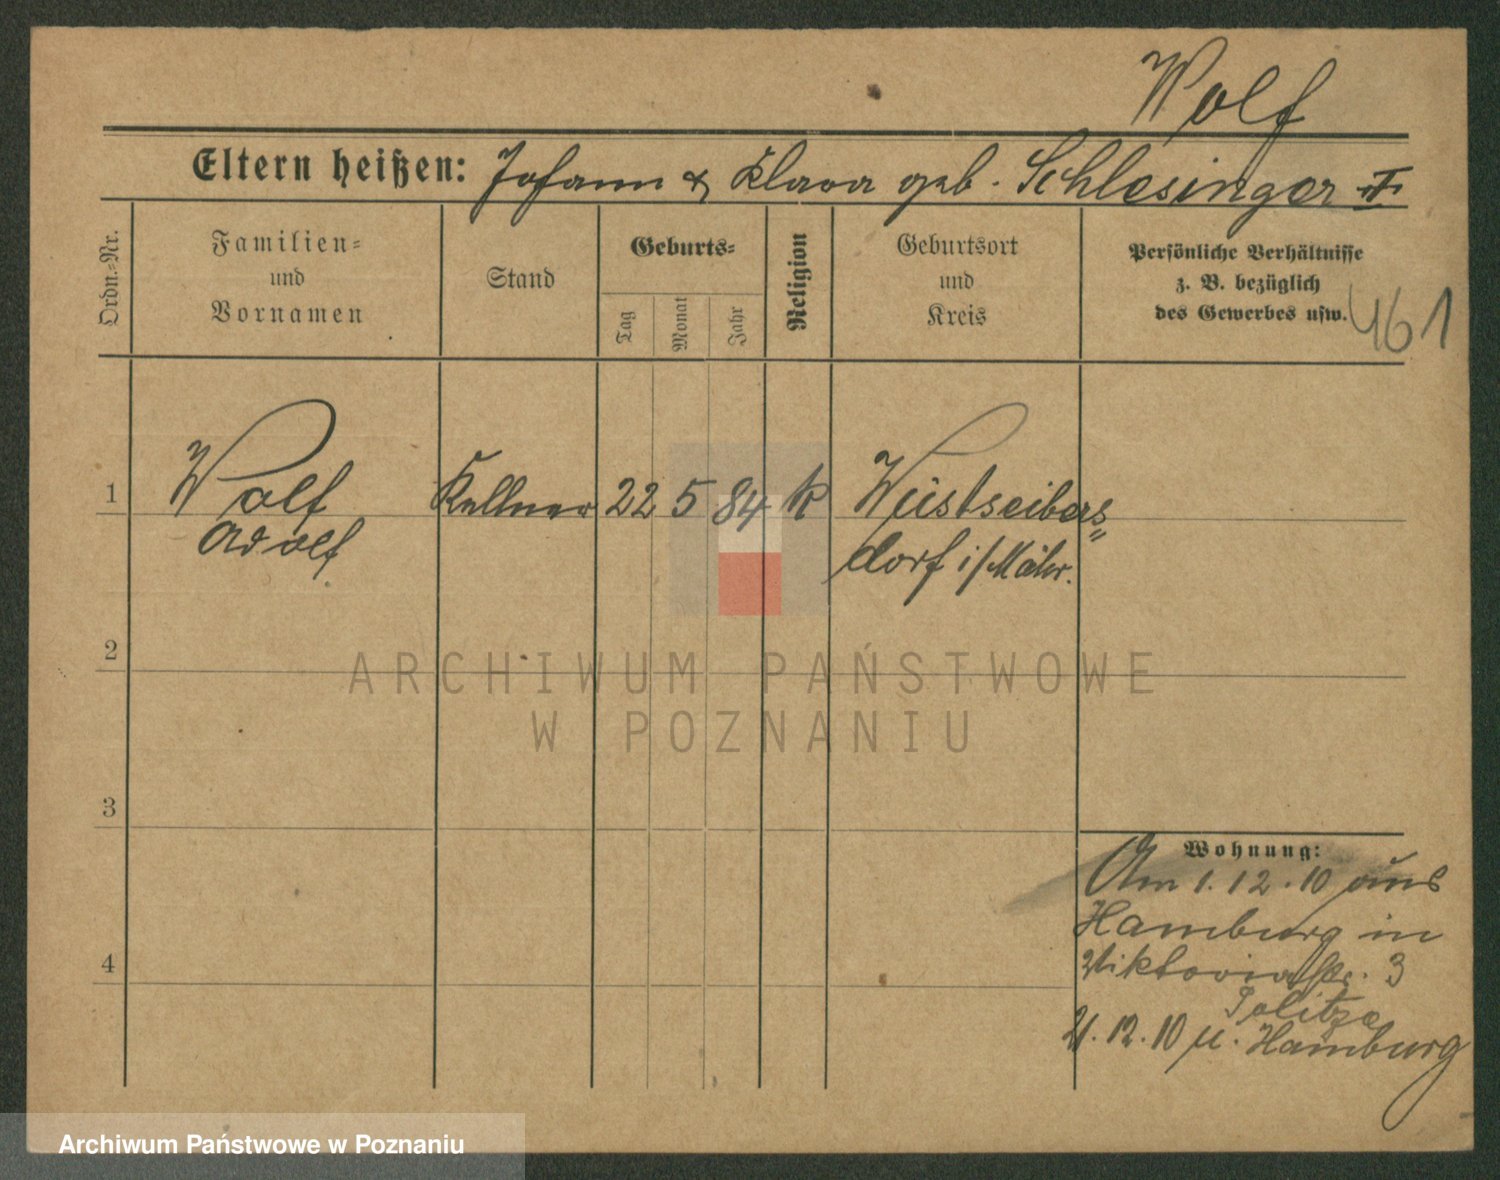 Wolf
Eltern heißen: Johann & Klara geb. Schlesinger
Ordn.-Nr.
Familien-
und
Vornamen
Stand
Geburts-
Tag
Monat
Jahr
Religion
Geburtsort
und
Kreis
Persönliche Verhältnisse
z. B. bezüglich
des Gewerbes usw.
461
1
Wolf
Adolf
Kellner
22
5
84
k
Wüstseibers=
dorf i/Mähr.
2
ARCHIWUM PAŃSTWOWE
W POZNANIU
3
4
Wohnung:
Am 1.12.10 aus
Hamburg in
Viktoriastr. 3
Politza
21.12.10 n. Hamburg
Archiwum Państwowe w Poznaniu